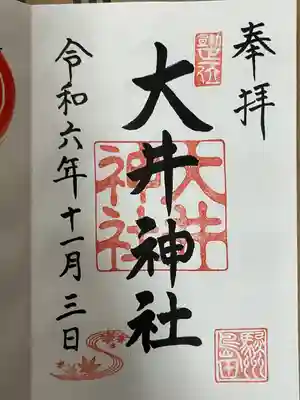 奉拝
大井神社
令和六年十一月三日
大井
神社